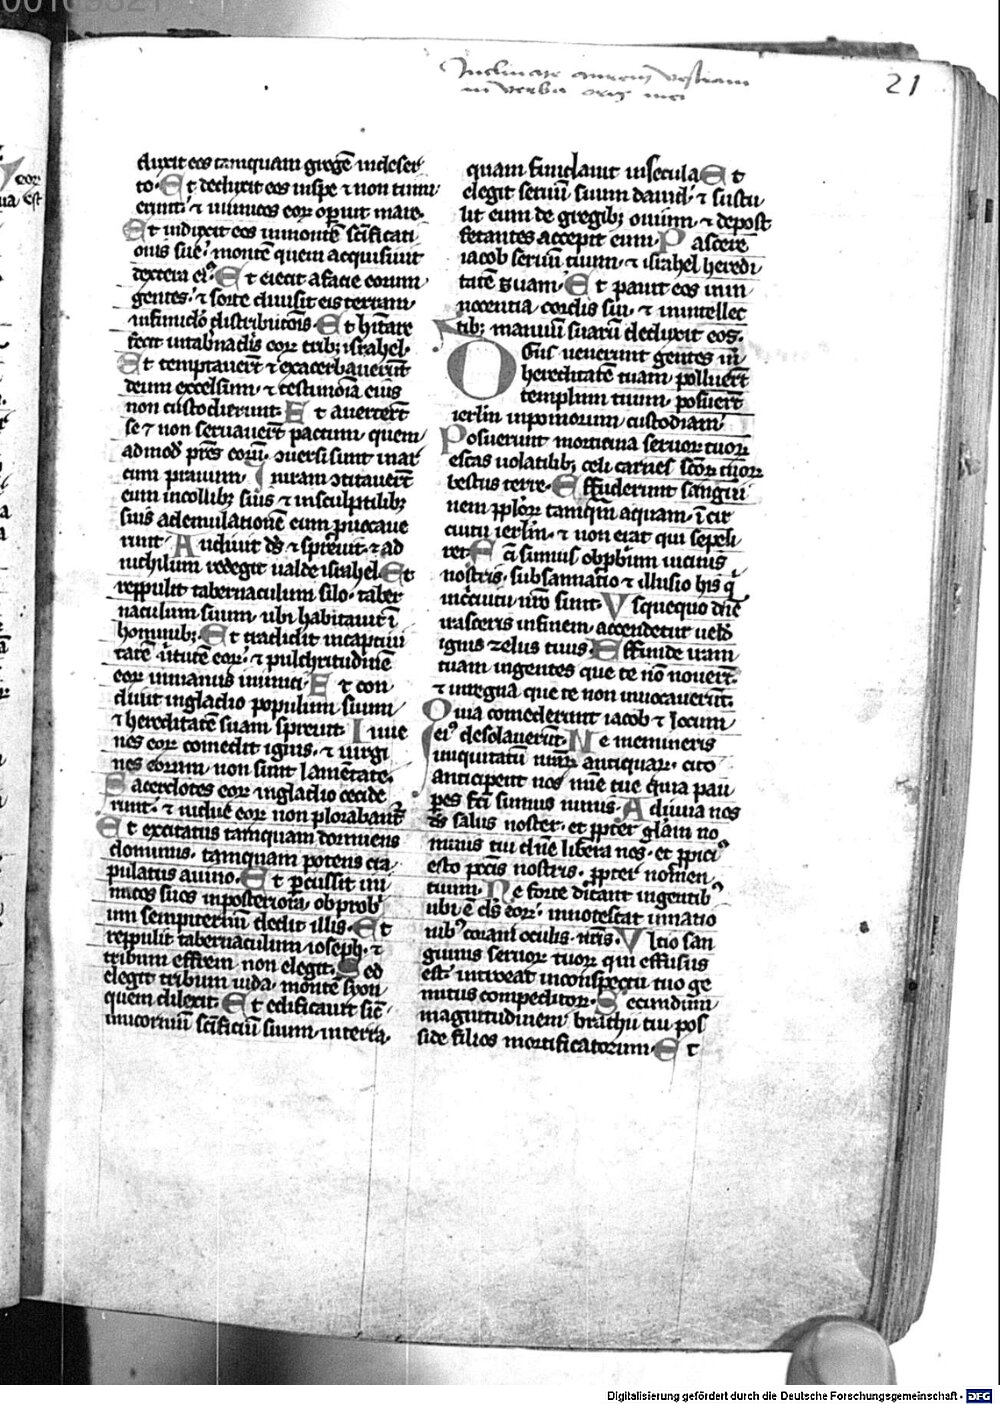 Inclinate aurem vestram
in verba oris mei
21
duxit eos tamquam gregē in deser
to· Et deduxit eos in spe ⁊ non timu
erunt· ⁊ inimicos eoꝝ opuit mare·
Et induxit eos in montē scīficati
onis sue· montē quem acquisiuit
dextera eiꝰ Et eiecit a facie eorum
gentes· ⁊ sorte diuisit eis terram
in funiclo distributōnis· Et hītare
fecit in tabnaclis eoꝝ tribꝫ israhel·
Et temptauert̄ ⁊ exacerbauerūt
deum excelsum· ⁊ testimōia eius
non custodierunt· Et auertert̄
se ⁊ non seruauert̄ pactum· quem
admodū pr̄es eorū· ꝯuersi sunt in ar
cum prauum· In iram ꝯcitauert̄
eum in collibꝫ suis ⁊ in sculptilibꝫ
suis ad emulationē eum puocaue
runt· Audiuit ds̄ ⁊ spreuit· ⁊ ad
nichilum redegit ualde israhel Et
reppulit tabernaculum silo· taber
naculum suum· ubi habitauit ī
hominibꝫ· Et tradidit in captiui
tatē uirtutē eoꝝ· ⁊ pulchritudinē
eoꝝ in manus inimici· Et con
clusit in gladio populum suum
⁊ hereditatē suam spreuit· Iuue
nes eoꝝ comedit ignis· ⁊ uirgi
nes eorum non sunt lamētate·
Sacerdotes eoꝝ in gladio cecide
runt· ⁊ uidue eoꝝ non plorabantꝛ
Et excitatus tamquam dormiens
dominus· tamquam potens cra
pulatus a uino· Et pcussit ini
micos suos in posteriora· obprob
ium sempiternum dedit illis· Et
reppulit tabernaculum ioseph· ⁊
tribum effrem non elegit· Sed
elegit tribum iuda· montē syon
quem dilexit· Et edificauit sic̄
unicorniū scīficiū suum· in terra
quam fundauit in secula Et
elegit seruū suum dauid· ⁊ sustu
lit eum de gregibꝫ ouium· ⁊ de post
fetantes accepit eum· Pascere
iacob seruū tuum· ⁊ israhel heredi
tatē suam· Et pauit eos in in
nocentia cordis sui· ⁊ in intellec
tibꝫ manuū suarū deduxit eos·
Deus uenerunt gentes in
hereditatē tuam· polluert̄
templum tuum· posuert̄
ierlm̄ in pomorum custodiam
Posuerunt morticina seruoꝝ tuoꝝ
escas uolatilibꝫ celi· carnes sc̄oꝝ tuoꝝ
bestiis terre· Effuderunt sangui
nem ip̄oꝝ tamqm̄ aquam· ī cir
cuitu ierlm̄· ⁊ non erat qui sepeli
ret· Fc̄i sumus obpbrium uicinis
nostris· subsannatio ⁊ illusio his q̄
in circuitu nr̄o sunt· Vsquequo dn̄e
irasceris in finem· accendetur uelud
ignis zelus tuus· Effunde iram
tuam in gentes que te nō nouert̄·
⁊ in regna que te non inuocauerūt·
Quia comederunt iacob ⁊ locum
eiꝰ desolauerūt· Ne memineris
iniquitatū nr̄aꝝ antiquaꝝ· cito
anticipent nos mīe tue quia pau
peres fc̄i sumus nimis· Adiuua nos
ds̄ salus noster· et ꝓpter glām no
minis tui dn̄e libera nos· et ꝓpiciꝰ
esto pcc̄is nostris· ꝓpter nomen
tuum· Ne forte dicant in gentibꝰ
ubi ē ds̄ eoꝝ· innotescat in natio
nibꝰ coram oculis nr̄is· Vltio san
guinis seruoꝝ tuoꝝ qui effusus
est· intreat in conspectu tuo ge
mitus compeditoꝝ· Secundum
magnitudinem brachii tui pos
side filios mortificatorum· Et
Digitalisierung gefördert durch die Deutsche Forschungsgemeinschaft - DFG